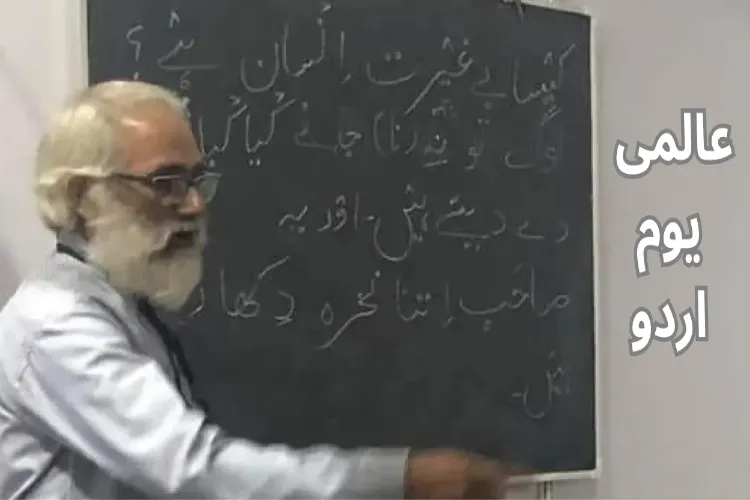 کیسا بے غیرت اِنسان ہے ؟
لوگ تو نہ (نا) جانے کیا کیا
دے دیتے ہیں۔ اور یہ
صاحب اِتنا نخرہ دِکھا
ہیں۔
عالمی
یوم
اردو